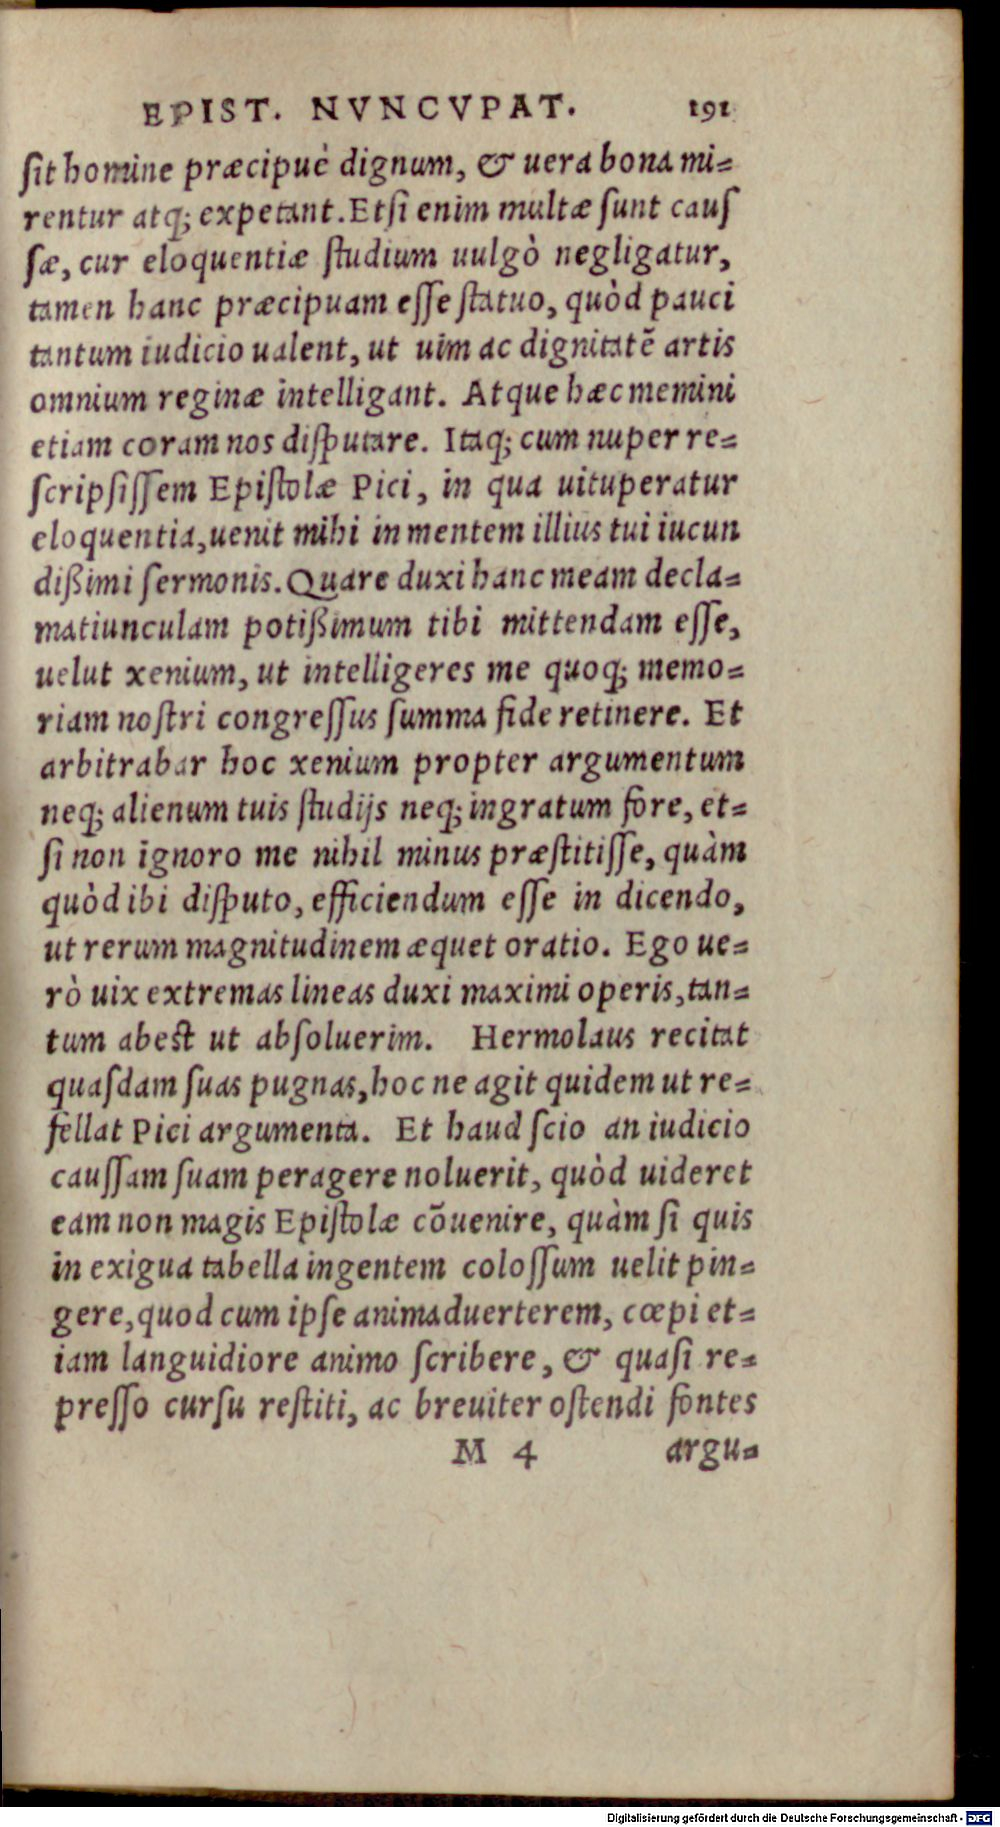 EPIST. NVNCVPAT. 191
sit homine præcipuè dignum, & uera bona mi=
rentur atq; expetant. Etsi enim multæ sunt caus
sæ, cur eloquentiæ studium uulgò negligatur,
tamen hanc præcipuam esse statuo, quòd pauci
tantum iudicio ualent, ut uim ac dignitatē artis
omnium reginæ intelligant. Atque hæc memini
etiam coram nos disputare. Itaq; cum nuper re=
scripsissem Epistolæ Pici, in qua uituperatur
eloquentia, uenit mihi in mentem illius tui iucun
dißimi sermonis. Quare duxi hanc meam decla=
matiunculam potißimum tibi mittendam esse,
uelut xenium, ut intelligeres me quoq; memo=
riam nostri congressus summa fide retinere. Et
arbitrabar hoc xenium propter argumentum
neq; alienum tuis studijs neq; ingratum fore, et=
si non ignoro me nihil minus præstitisse, quàm
quòd ibi disputo, efficiendum esse in dicendo,
ut rerum magnitudinem æquet oratio. Ego ue=
rò uix extremas lineas duxi maximi operis, tan=
tum abest ut absoluerim. Hermolaus recitat
quasdam suas pugnas, hoc ne agit quidem ut re=
fellat Pici argumenta. Et haud scio an iudicio
caussam suam peragere noluerit, quòd uideret
eam non magis Epistolæ cōuenire, quàm si quis
in exigua tabella ingentem colossum uelit pin=
gere, quod cum ipse animaduerterem, cœpi et=
iam languidiore animo scribere, & quasi re=
presso cursu restiti, ac breuiter ostendi fontes
M 4 argu=
Digitalisierung gefördert durch die Deutsche Forschungsgemeinschaft - DFG